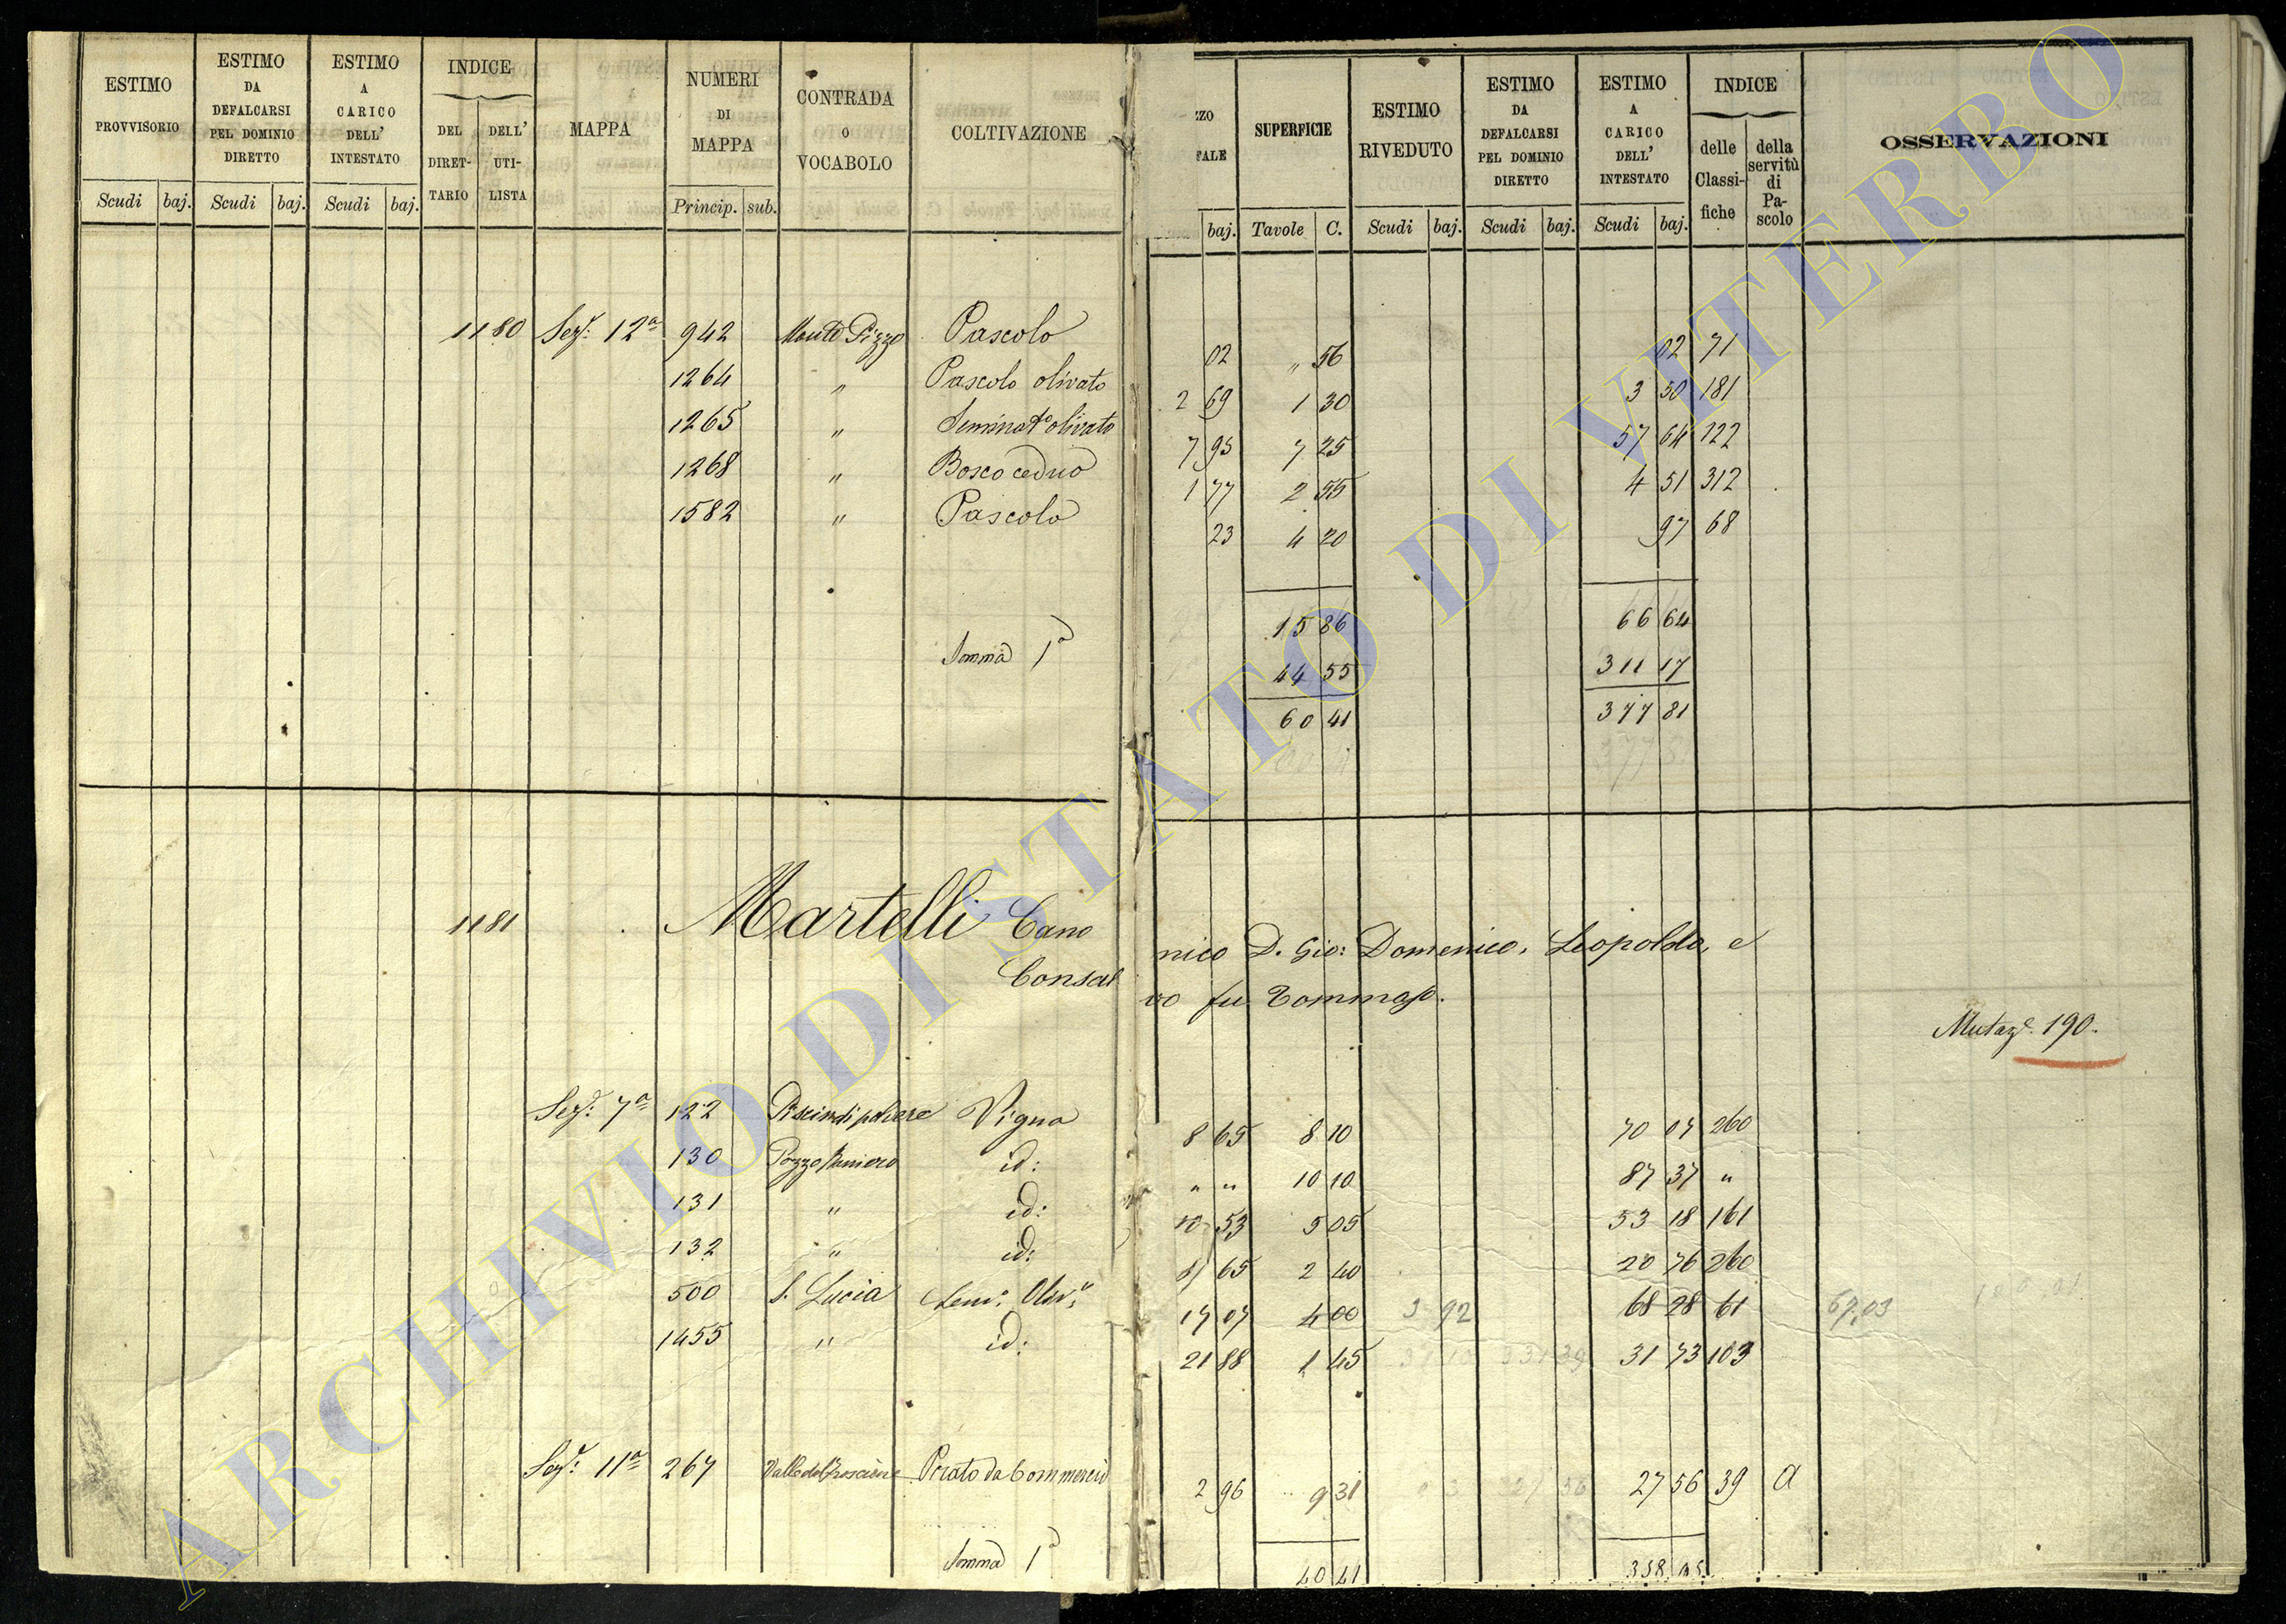 ESTIMO PROVVISORIO Scudi baj.
ESTIMO DA DEFALCARSI PEL DOMINIO DIRETTO Scudi baj.
ESTIMO A CARICO DELL' INTESTATO Scudi baj.
INDICE DEL DIRET-TARIO DELL' UTI-LISTA
MAPPA
NUMERI DI MAPPA Princip. sub.
CONTRADA O VOCABOLO
COLTIVAZIONE
ZZO TALE baj.
SUPERFICIE Tavole C.
ESTIMO RIVEDUTO Scudi baj.
ESTIMO DA DEFALCARSI PEL DOMINIO DIRETTO Scudi baj.
ESTIMO A CARICO DELL' INTESTATO Scudi baj.
INDICE delle Classi-fiche della servitù di Pa-scolo
OSSERVAZIONI
1180 Sez.e 12a 942 Monte Pizzo Pascolo 02 " 56 02 71
1264 " Pascolo olivato 2 69 1 30 3 50 181
1265 " Seminat.o olivato 7 95 7 25 57 64 122
1268 " Bosco ceduo 1 77 2 55 4 51 312
1582 " Pascolo 23 4 20 97 68
15 86 66 64
Somma 1a 44 55 311 17
60 41 377 81
1181 Martelli Cano nico D. Gio: Domenico, Leopoldo, e
Consal vo fu Tommaso.
Mutaz.e 190.
Sez.e 7a 122 Vigna 8 65 8 10 70 07 260
130 id: " " 10 10 87 37 "
131 " id: 10 53 5 05 53 18 161
132 " id: 8 65 2 40 20 76 260
500 S. Lucia Sem.o Oliv.o 17 07 4 00 3 92 68 28 61 67.03
1455 " id: 21 88 1 45 31 73 103
Sez.e 11a 267 Prato da Commercio 2 96 9 31 27 56 39 a
Somma 1a 40 41 358 95
ARCHIVIO DI STATO DI VITERBO